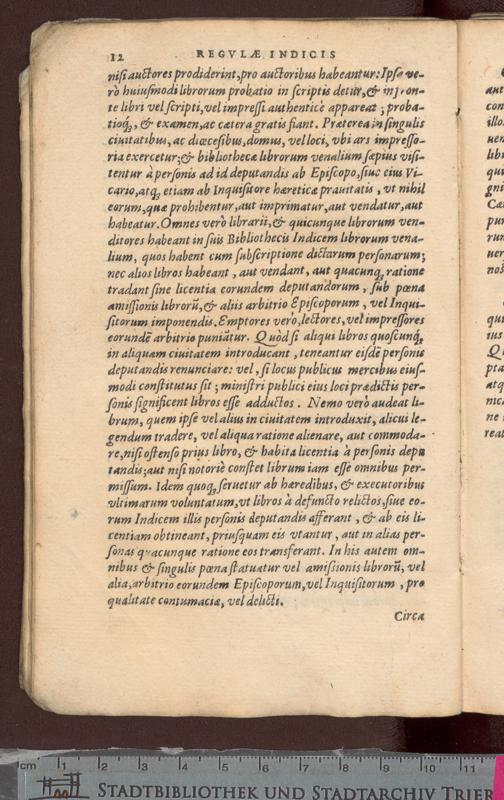 12 REGVLÆ INDICIS
nisi auctores prodiderint, pro auctoribus habeantur: Ipsa ve-
rò huiusmodi librorum probatio in scriptis detur, & in fron-
te libri vel scripti, vel impressi authenticè appareat; proba-
tioq́;, & examen, ac cætera gratis fiant. Præterea in singulis
ciuitatibus, ac diœcesibus, domus, vel loci, vbi ars impresso-
ria exercetur; & bibliothecæ librorum venalium sæpius visi-
tentur à personis ad id deputandis ab Episcopo, siue eius Vi-
cario, atq́; etiam ab Inquisitore hæreticæ prauitatis, vt nihil
eorum, quæ prohibentur, aut imprimatur, aut vendatur, aut
habeatur. Omnes verò librarii, & quicunque librorum ven-
ditores habeant in suis Bibliothecis Indicem librorum vena-
lium, quos habent cum subscriptione dictarum personarum;
nec alios libros habeant, aut vendant, aut quacunq́; ratione
tradant sine licentia eorundem deputandorum, sub pœna
amissionis librorũ, & aliis arbitrio Episcoporum, vel Inqui-
sitorum imponendis. Emptores verò, lectores, vel impressores
eorundẽ arbitrio puniãtur. Quòd si aliqui libros quoscunq́;
in aliquam ciuitatem introducant, teneantur eisdẽ personis
deputandis renunciare: vel, si locus publicus mercibus eius-
modi constitutus sit; ministri publici eius loci prædictis per-
sonis significent libros esse adductos. Nemo verò audeat li-
brum, quem ipse vel alius in ciuitatem introduxit, alicui le-
gendum tradere, vel aliqua ratione alienare, aut commoda-
re, nisi ostenso prius libro, & habita licentia à personis depu
tandis; aut nisi notoriè constet librum iam esse omnibus per-
missum. Idem quoq́; seruetur ab hæredibus, & executoribus
vltimarum voluntatum, vt libros à defuncto relictos, siue eo-
rum Indicem illis personis deputandis afferant, & ab eis li-
centiam obtineant, priusquam eis vtantur, aut in alias per-
sonas quacunque ratione eos transferant. In his autem om-
nibus & singulis pœna statuatur vel amissionis librorũ, vel
alia, arbitrio eorundem Episcoporum, vel Inquisitorum, pro
qualitate contumacia, vel delicti.
Circa
cm 1 2 3 4 5 6 7 8 9 10 11
STADTBIBLIOTHEK UND STADTARCHIV TRIER